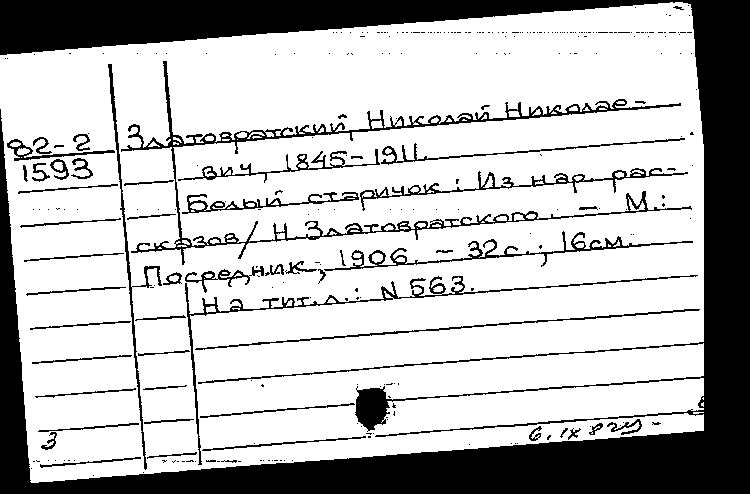 82-2 Златовратский, Николай Николае-
1593 вич, 1845-1911.
Белый старичок: Из нар. рас-
сказов / Н. Златовратского. - М.:
Посредник, 1906. - 32с.; 16см.
На тит. л.: N 563.
3
6.IX 82